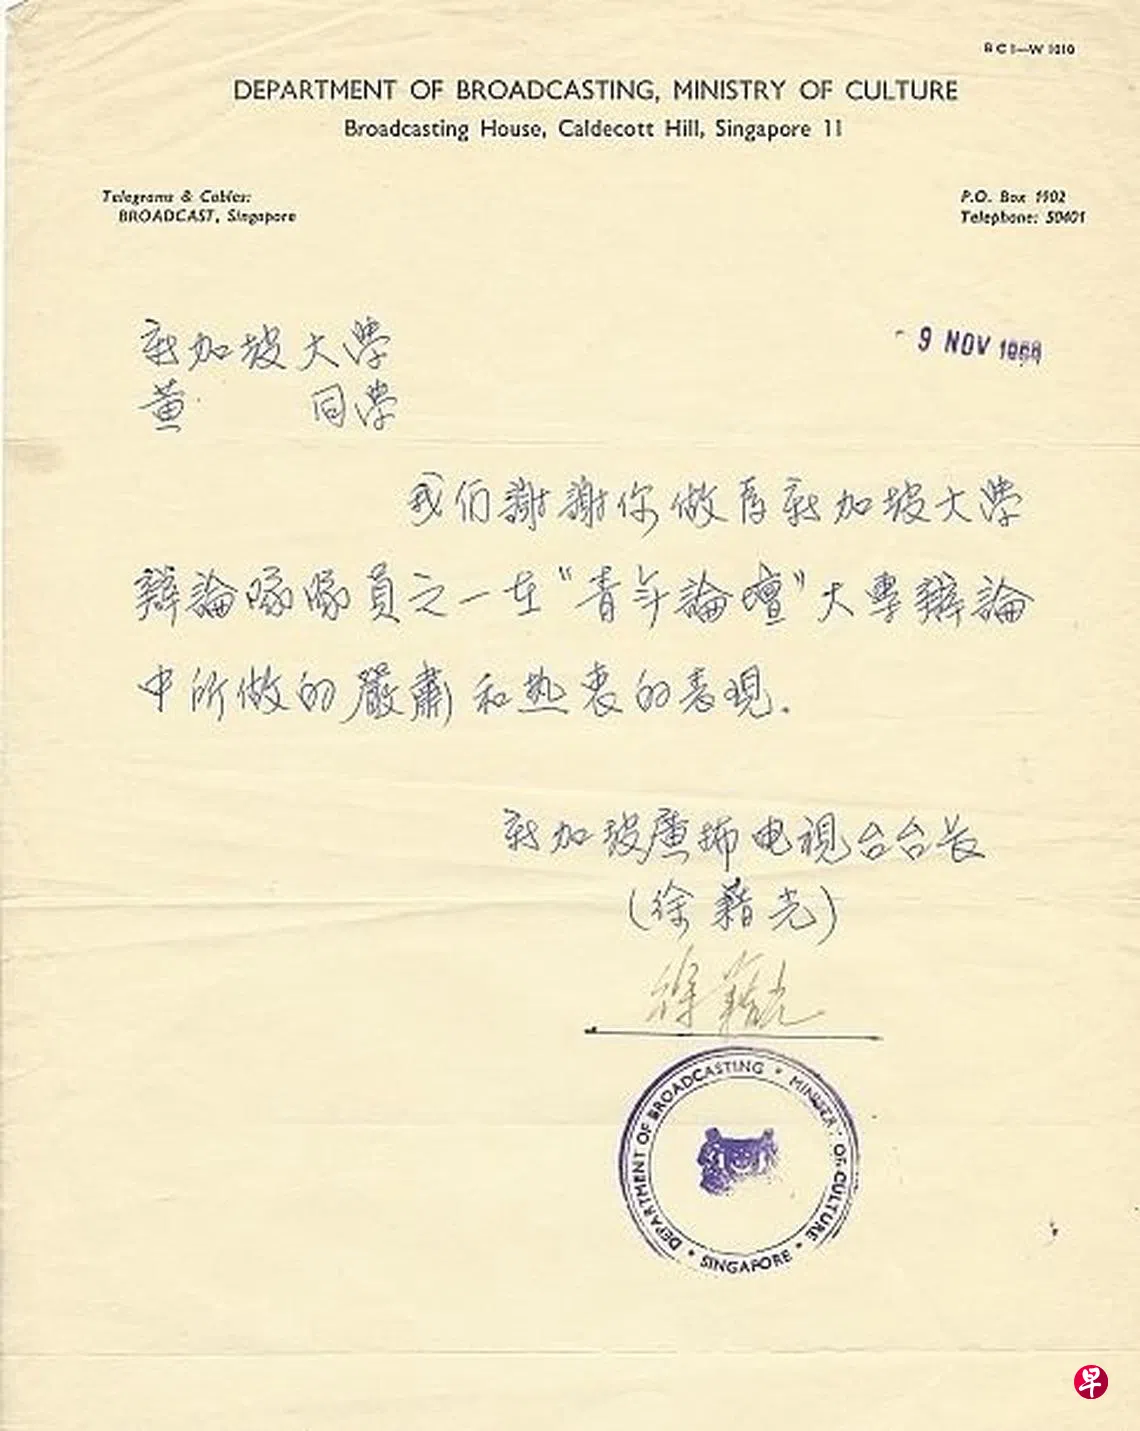 BCI—W 1010
DEPARTMENT OF BROADCASTING, MINISTRY OF CULTURE
Broadcasting House, Caldecott Hill, Singapore 11
Telegrams & Cables:
BROADCAST, Singapore
P.O. Box 1902
Telephone: 50401
新加坡大學
黄 同學
- 9 NOV
我们謝謝你做為新加坡大學
辯論隊隊員之一在“青年論壇”大專辯論
中所做的嚴肅和热衷的表現.
新加坡廣播电視台台长
(徐藉光)
徐藉光
DEPARTMENT OF BROADCASTING • MINISTRY OF CULTURE • SINGAPORE •
早